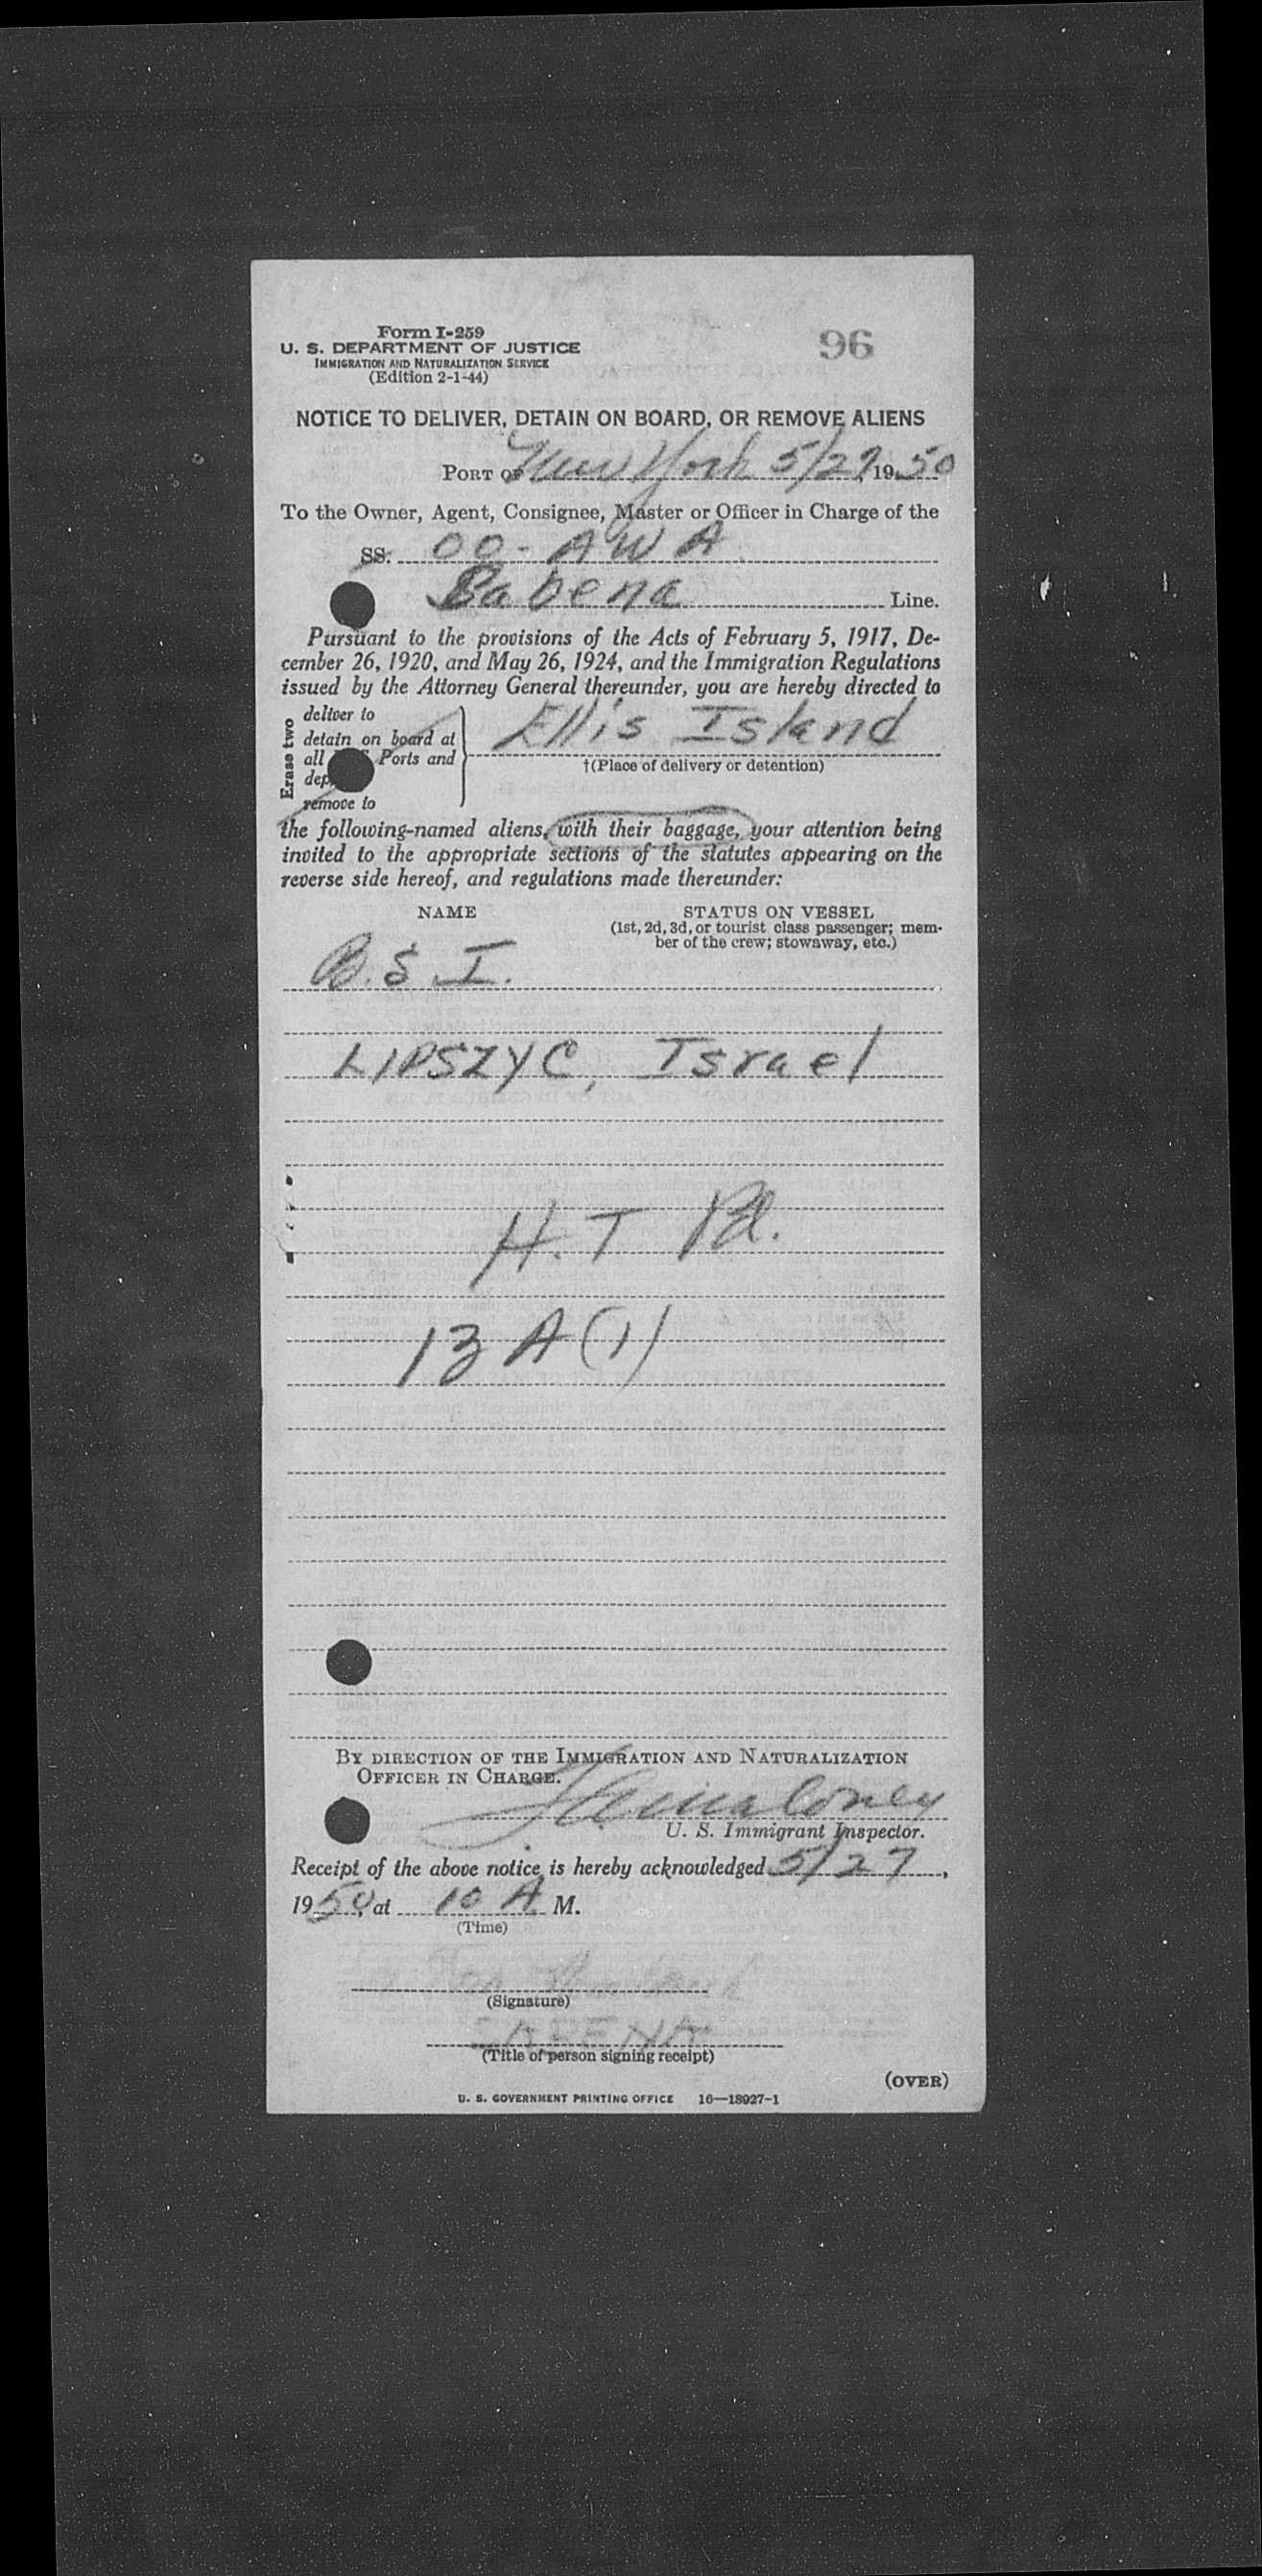 Form I-259
U. S. DEPARTMENT OF JUSTICE
IMMIGRATION AND NATURALIZATION SERVICE
(Edition 2-1-44)
96
NOTICE TO DELIVER, DETAIN ON BOARD, OR REMOVE ALIENS
PORT OF New York 5/27, 1950
To the Owner, Agent, Consignee, Master or Officer in Charge of the
SS. OO-AWA
Sabena Line.
Pursuant to the provisions of the Acts of February 5, 1917, De-
cember 26, 1920, and May 26, 1924, and the Immigration Regulations
issued by the Attorney General thereunder, you are hereby directed to
Erase two
deliver to
detain on board at
all Ports and
remove to
Ellis Island
†(Place of delivery or detention)
the following-named aliens, with their baggage, your attention being
invited to the appropriate sections of the statutes appearing on the
reverse side hereof, and regulations made thereunder:
NAME
STATUS ON VESSEL
(1st, 2d, 3d, or tourist class passenger; mem-
ber of the crew; stowaway, etc.)
B.S.I.
LIPSZYC, Israel
H.T Pd.
13 A(1)
BY DIRECTION OF THE IMMIGRATION AND NATURALIZATION
OFFICER IN CHARGE.
U. S. Immigrant Inspector.
Receipt of the above notice is hereby acknowledged 5/27,
1950, at 10 A. M.
(Time)
(Signature)
SABENA
(Title of person signing receipt)
(OVER)
U. S. GOVERNMENT PRINTING OFFICE 16—18927-1